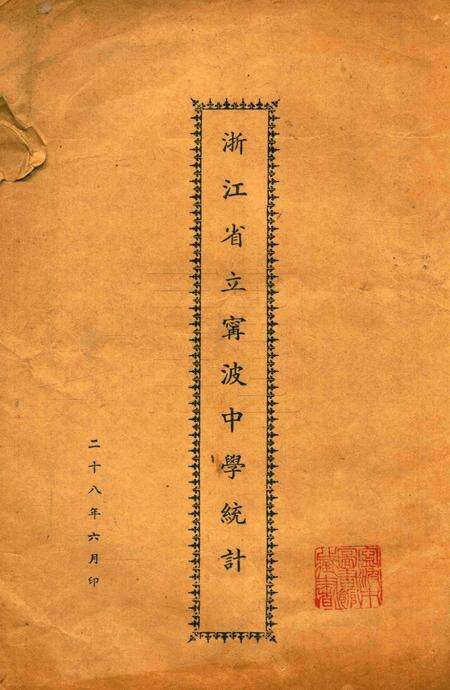 浙江省立甯波中學統計
二十八年六月印